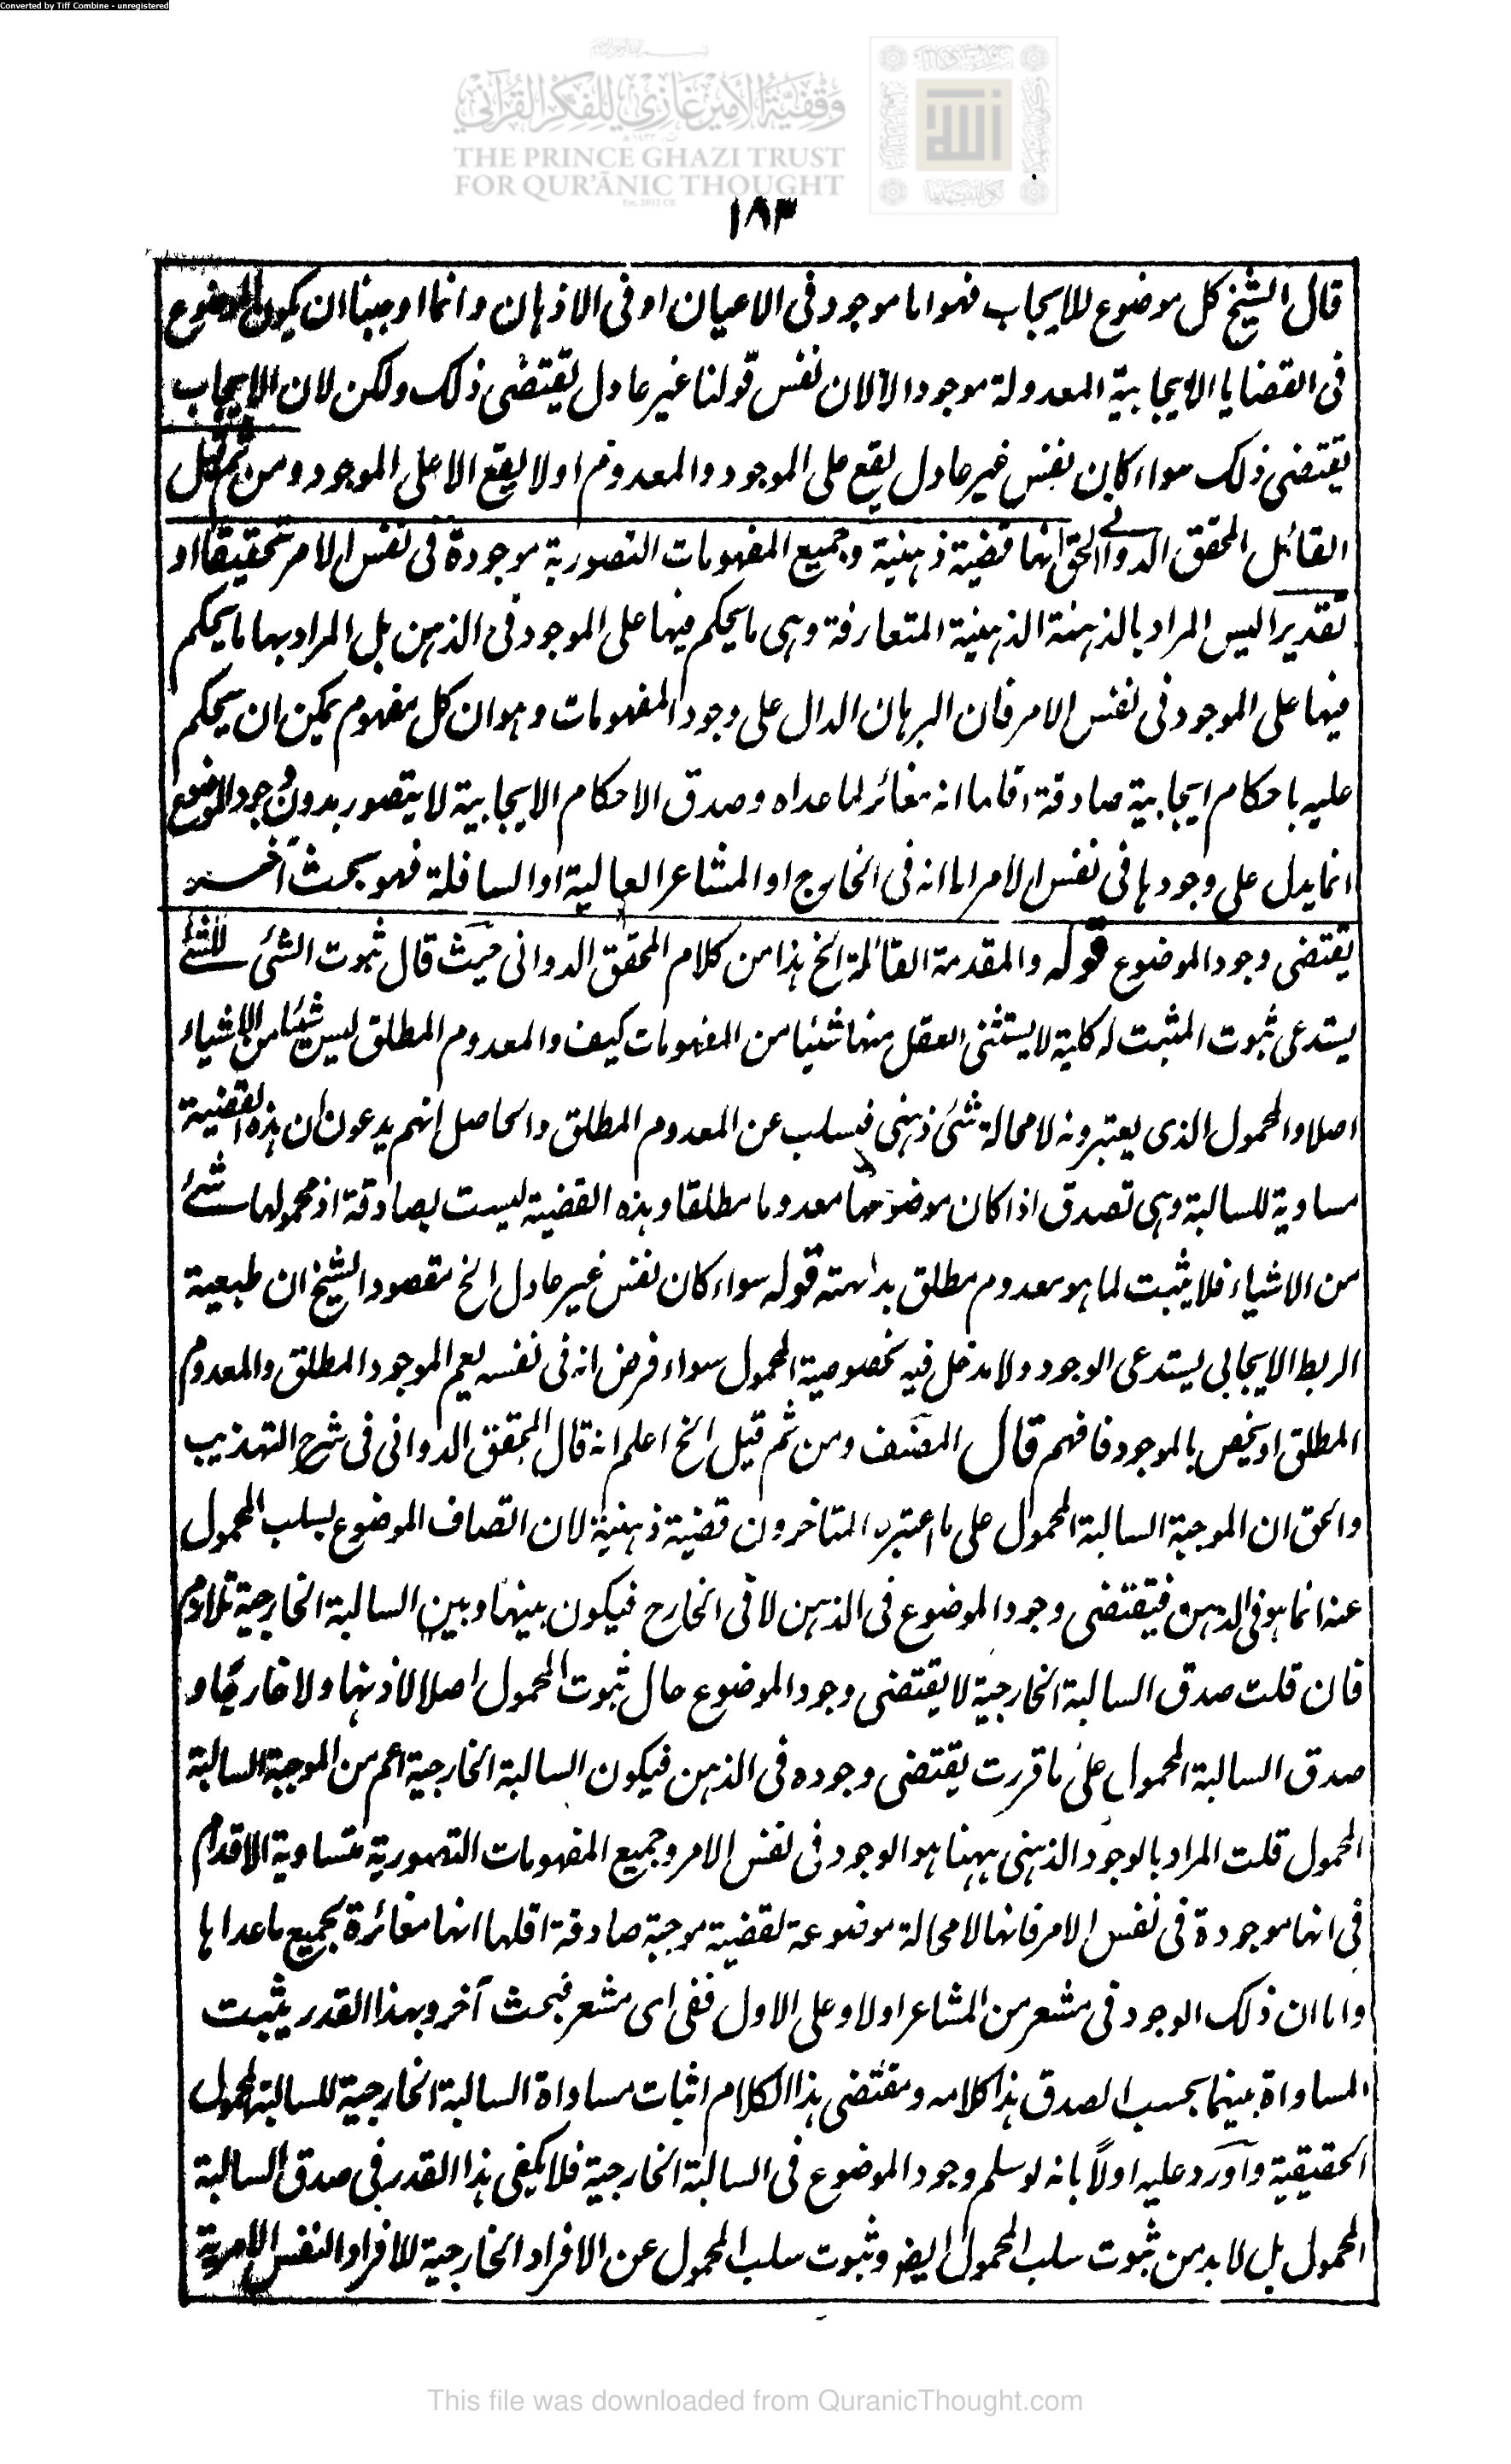 Converted by Tiff Combine - unregistered
وقفية الأمير غازي للفكر القرآني
THE PRINCE GHAZI TRUST
FOR QUR'ĀNIC THOUGHT
Est. 2012 CE
١٨٣
قال الشيخ كل موضوع للايجاب فهو اما موجود فى الاعيان او فى الاذهان وانما اوجبنا ان يكون الموضوع
فى القضايا الايجابية المعدولة موجودا لا لان نفس قولنا غير عادل يقتضى ذلك ولكن لان الايجاب
يقتضى ذلك سواء كان نفس غير عادل يقع على الموجود والمعدوم او لا يقع الا على الموجود ومن ثم قيل
القائل المحقق الدوانے الحق انها قضية ذهنية وجميع المفهومات التصورية موجودة فى نفس الامر تحقيقا او
تقديرا ليس المراد بالذهنة الذهنية المتعارفة وهى ما يحكم فيها على الموجود فى الذهن بل المراد بها ما يحكم
فيها على الموجود فى نفس الامر فان البرهان الدال على وجود المفهومات وهو ان كل مفهوم يمكن ان يحكم
عليه باحكام ايجابية صادقة اقلها انه مغائر لما عداه وصدق الاحكام الايجابية لا يتصور بدون وجود الموضوع
انما يدل على وجودها فى نفس الامر اما انه فى الخارج او المشاعر العالية او السافلة فهو بحث آخر
يقتضى وجود الموضوع قوله والمقدمة القائلة الخ هذا من كلام المحقق الدوانى حيث قال ثبوت الشئ للشئ
يستدعى ثبوت المثبت له كلية لا يستثنى العقل منها شيئا من المفهومات كيف والمعدوم المطلق ليس شيئا من الاشياء
اصلا والمحمول الذى يعتبرونه لا محالة شئ ذهنى فيسلب عن المعدوم المطلق والحاصل انهم يدعون ان هذه القضية
مساوية للسالبة وهى تصدق اذا كان موضوعها معدوما مطلقا وهذه القضية ليست بصادقة اذ محمولها شئ
من الاشياء فلا يثبت لما هو معدوم مطلق بداهته قوله سواء كان نفس غير عادل الخ مقصود الشيخ ان طبعية
الربط الايجابى يستدعى الوجود ولا مدخل فيه لخصوصية المحمول سواء فرض انه فى نفسه يعم الموجود المطلق والمعدوم
المطلق او يخص بالموجود فافهم قال المصنف ومن ثم قيل الخ اعلم انه قال المحقق الدوانى فى شرح التهذيب
والحق ان الموجبة السالبة المحمول على ما اعتبره المتاخرون قضية ذهنية لان اتصاف الموضوع بسلب المحمول
عنه انما هو فى الذهن فيقتضى وجود الموضوع فى الذهن لا فى الخارج فيكون بينها وبين السالبة الخارجية تلازم
فان قلت صدق السالبة الخارجية لا يقتضى وجود الموضوع حال ثبوت المحمول اصلا لا ذهنا ولا خارجا و
صدق السالبة المحمول على ما قررت يقتضى وجوده فى الذهن فيكون السالبة الخارجية اعم من الموجبة السالبة
المحمول قلت المراد بالوجود الذهنى ههنا هو الوجود فى نفس الامر وجميع المفهومات التصورية متساوية الاقدام
فى انها موجودة فى نفس الامر فانها لا محالة موضوعة لقضية موجبة صادقة اقلها انها مغائرة لجميع ما عداها
واما ان ذلك الوجود فى مشعر من المشاعر اولا وعلى الاول ففى اى مشعر فبحث آخر وبهذا القدر يثبت
المساواة بينهما بحسب الصدق هذا كلامه ومقتضى هذا الكلام اثبات مساواة السالبة الخارجية للسالبة المحمول
الحقيقية وأورد عليه اولاً بانه لو سلم وجود الموضوع فى السالبة الخارجية فلا يكفى هذا القدر فى صدق السالبة
المحمول بل لا بد من ثبوت سلب المحمول ايضر وثبوت سلب المحمول عن الافراد الخارجية للافراد النفس الامرية
This file was downloaded from QuranicThought.com